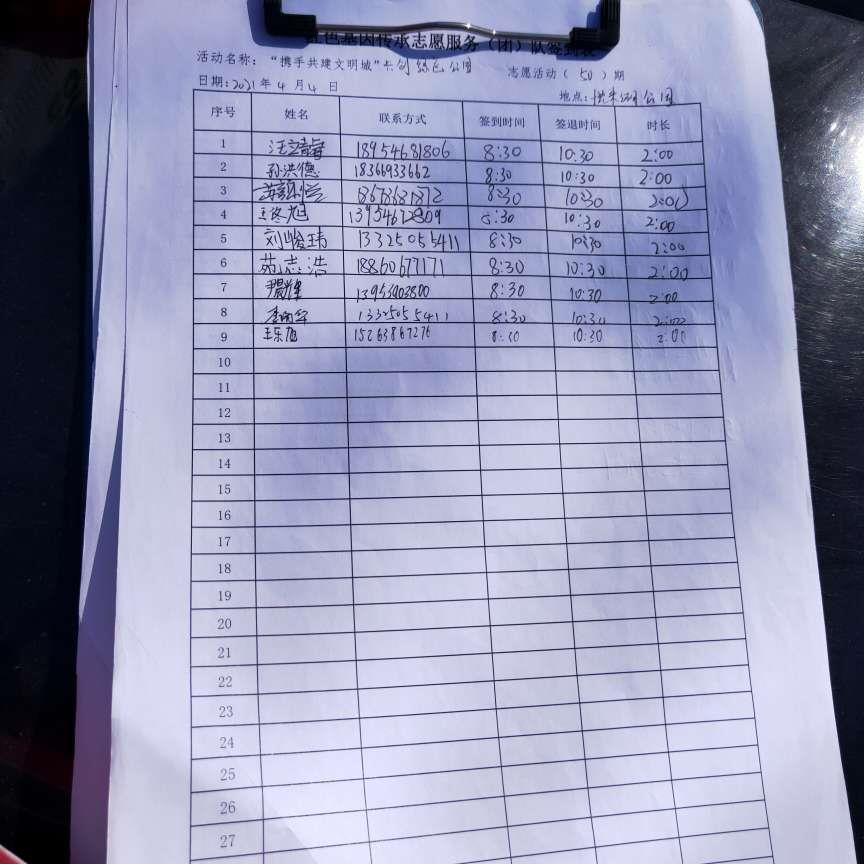 红色基因传承志愿服务（团）队签到表
活动名称：“携手共建文明城”共创绿色公园 志愿活动（50）期
日期：2021年4月4日 地点：公园
序号 姓名 联系方式 签到时间 签退时间 时长
1 18954681806 8:30 10:30 2:00
2 孙洪德 18366933662 8:30 10:30 2:00
3 18678681872 8:30 10:30 2:00
4 8:30 10:30 2:00
5 刘峻玮 13325055411 8:30 10:30 2:00
6 苑志浩 18860677171 8:30 10:30 2:00
7 13953403800 8:30 10:30 2:00
8 13325055411 8:30 10:30 2:00
9 王东旭 15263867276 8:30 10:30 2:00
10
11
12
13
14
15
16
17
18
19
20
21
22
23
24
25
26
27